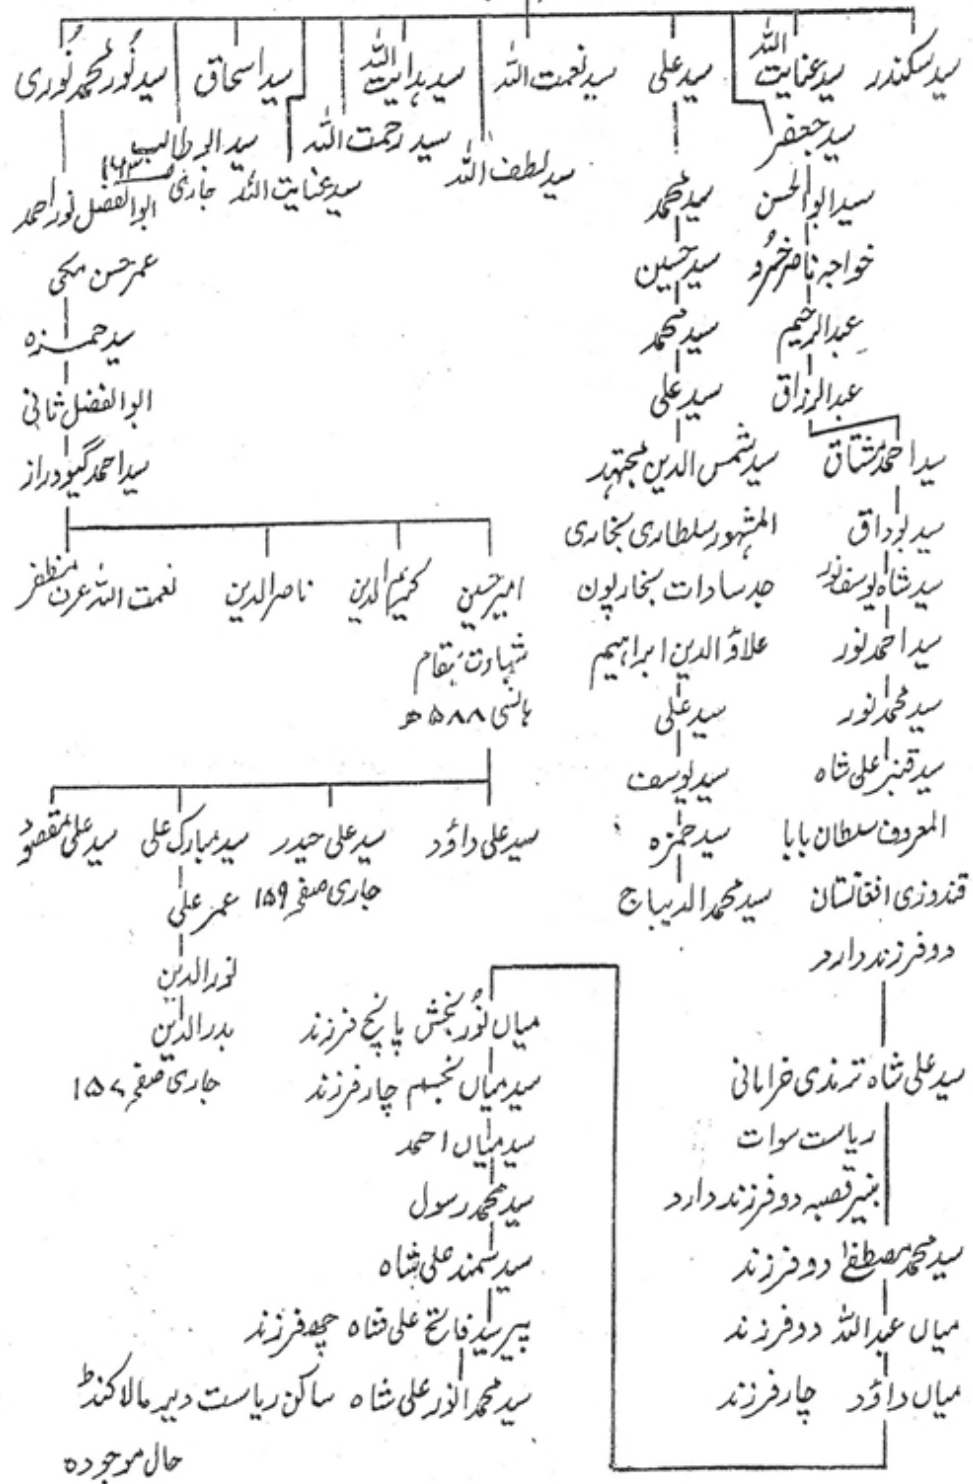 سید سکندر
سید عنایت اللہ
سید علی
سید نعمت اللہ
سید ہدایت اللہ
سید اسحاق
سید نُور محمد نُوری
سید جعفر
سید لطف اللہ
سید رحمت اللہ
سید عنایت اللہ
سید ابو طالب
جاری ۱۶۳
سید ابوالحسن
خواجہ ناصر خسرو
عبدالرحیم
عبدالرزاق
سید احمد مشتاق
سید بوداق
سید شاہ یوسف نور
سید احمد نور
سید محمد نور
سید قنبر علی شاہ
المعروف سلطان بابا
قندوزی افغانستان
دو فرزند دارد
سید علی شاہ ترمذی خراسانی
ریاست سوات
بنیر قصبہ دو فرزند دارد
سید محمد مصطفےٰ دو فرزند
میاں عبداللہ دو فرزند
میاں داؤد چار فرزند
سید محمد
سید حسین
سید محمد
سید علی
سید شمس الدین مجتہد
المشہور سلطاری بخاری
جد سادات بخاریون
علاؤالدین ابراہیم
سید علی
سید یوسف
سید حمزہ
سید محمد الدیباج
ابوالفضل نور احمد
عمر حسن مکی
سید حمزہ
ابوالفضل ثانی
سید احمد گیودراز
امیر حسین
کریم الدین
ناصرالدین
نعمت اللہ عرف مظفر
شہادت بمقام
ہانسی ۵۸۸ھ
سید علی داؤد
سید علی حیدر
سید مبارک علی
سید علی مقصود
جاری صفحہ ۱۵۹
عمر علی
نورالدین
بدرالدین
جاری صفحہ ۱۵۷
میاں نُور بخش پانچ فرزند
سید میاں نجم چار فرزند
سید میاں احمد
سید محمد رسول
سید سمند علی شاہ
پیر سید فاتح علی شاہ چھ فرزند
سید محمد انور علی شاہ ساکن ریاست دیر مالاکنڈ
حال موجودہ